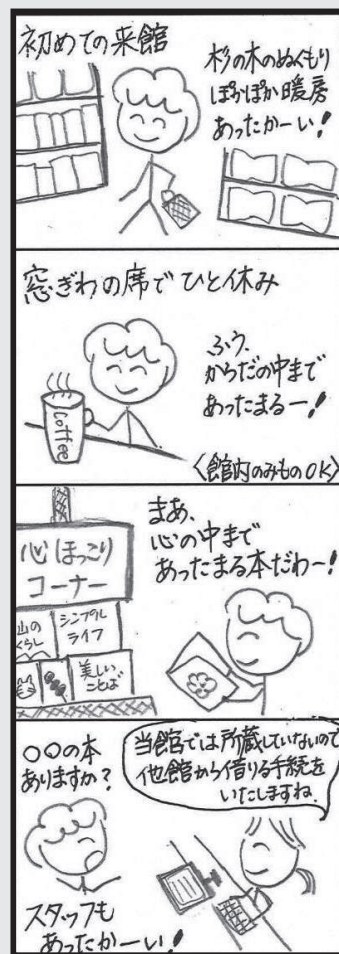 初めての来館
杉の木のぬくもり
ぽかぽか暖房
あったかーい!
窓ぎわの席でひと休み
ふう、
からだの中まで
あったまるー!
Coffee
〈館内のみものOK〉
まあ、
心の中まで
あったまる本だわ〜!
心ほっこり
コーナー
山の
くらし
シンプル
ライフ
美しい
ことば
〇〇の本
ありますか?
当館では所蔵していないので
他館から借りる手続を
いたしますね。
スタッフも
あったかーい!